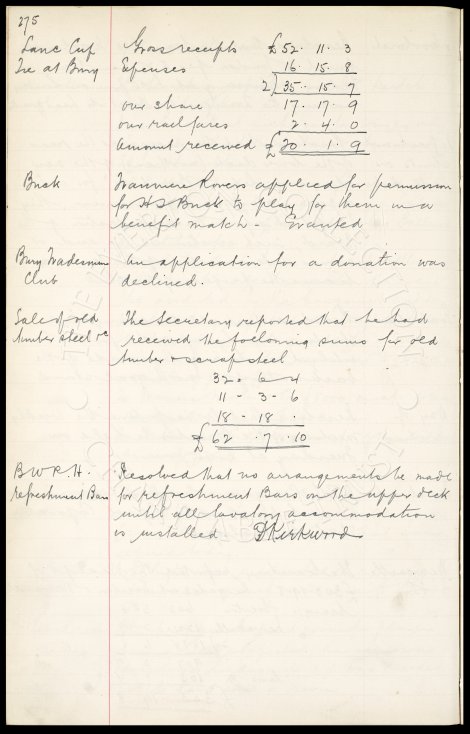 275
Lanc Cup Gross receipts £52 . 11 . 3
Tie at Bury Expenses 16 . 15 . 8
2) 35 . 15 . 7
our share 17 . 17 . 9
our railfares 2 . 4 . 0
Amount received £20 . 1 . 9
Buck Tranmere Rovers applied for permission
for H S Buck to play for them in a
benefit match - Granted
Bury Tradesmen An application for a donation was
Club declined.
Sale of old The Secretary reported that he had
timber steel &c received the following sums for old
timber & scrap steel
32 . 6 . 4
11 - 3 - 6
18 - 18 .
£62 . 7 . 10
B W R. H. Resolved that no arrangements be made
refreshment Bars for refreshment Bars on the upper deck
until all lavatory accommodation
is installed D Kirkwood